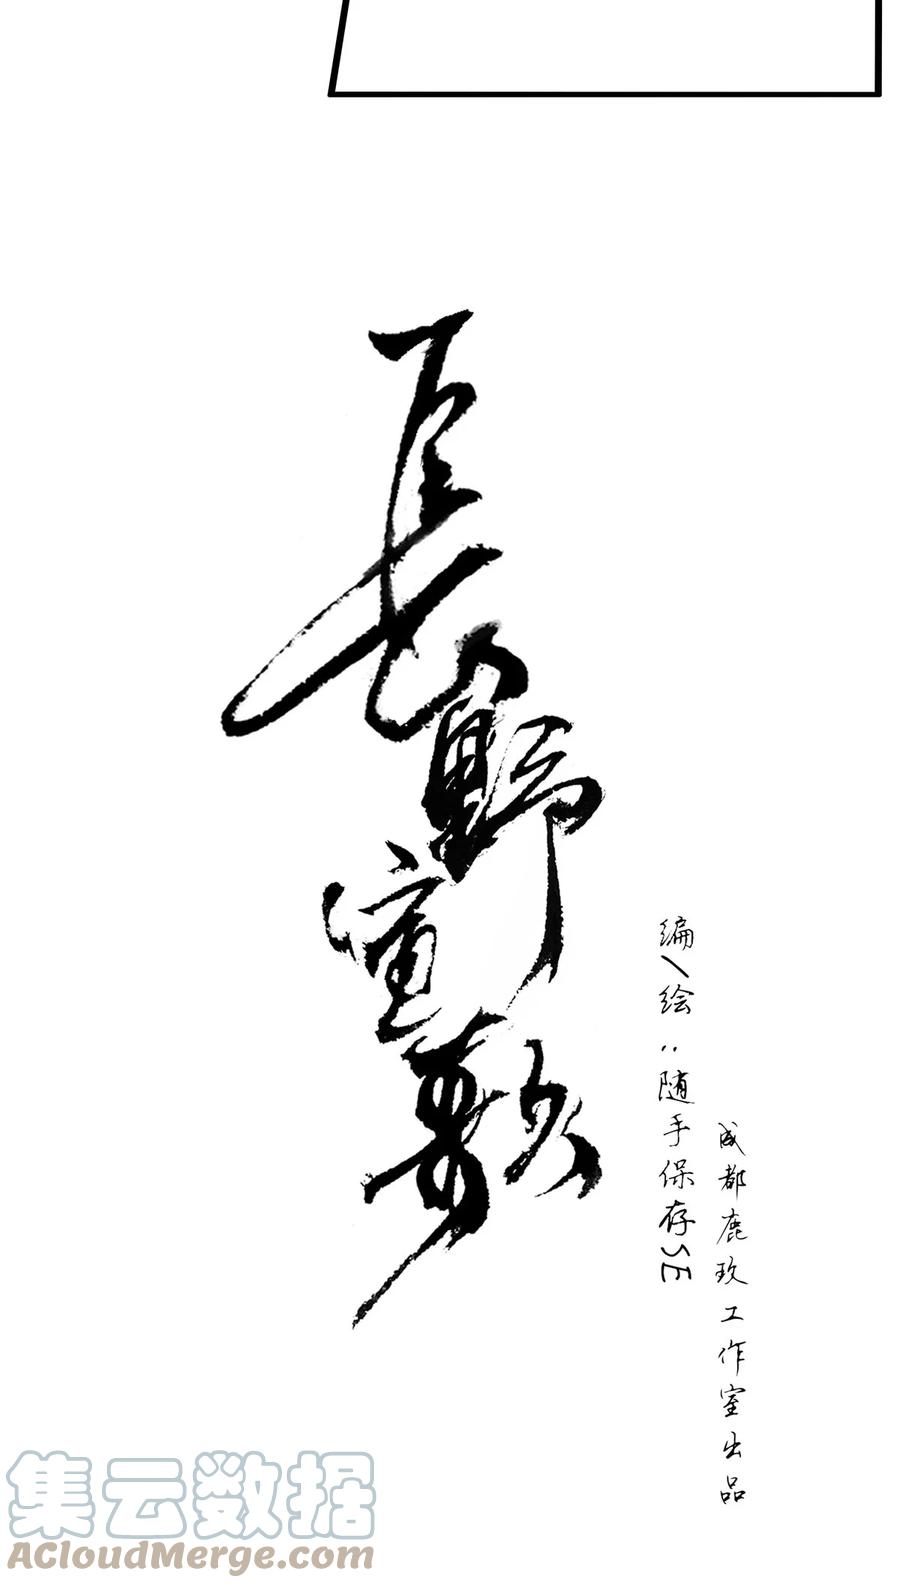 長野宣敷
编/绘:随手保存SE
成都鹿玖工作室出品
集云数据
AcloudMerge.com